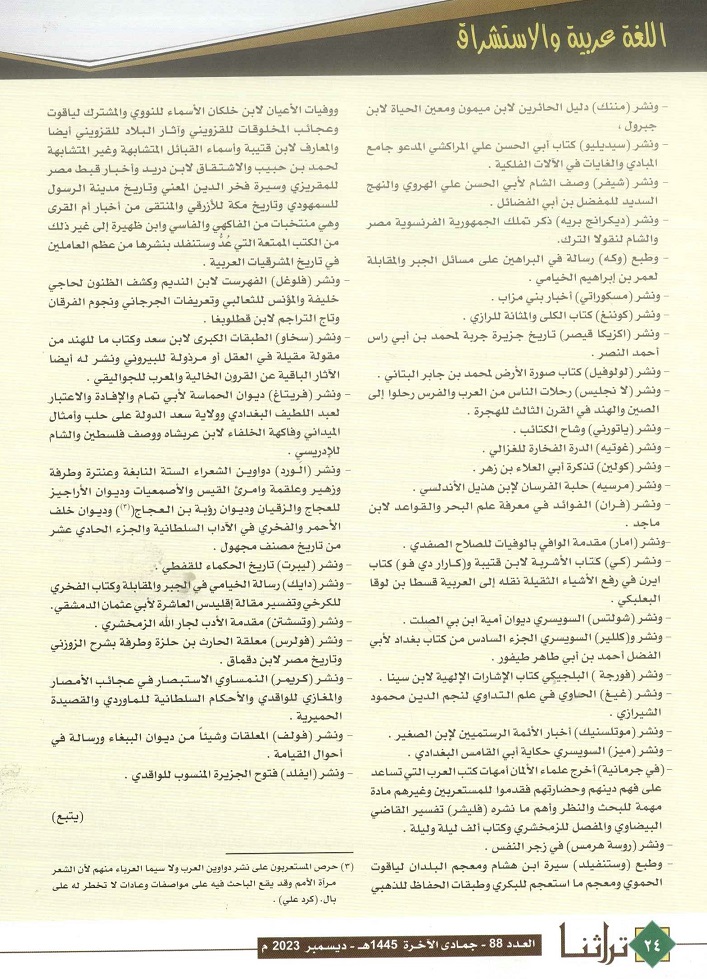 اللغة عربية والاستشراق
- ونشر (مننك) دليل الحائرين لابن ميمون ومعين الحياة لابن
جبرول ،
- ونشر (سيديليو) كتاب أبي الحسن علي المراكشي المدعو جامع
المبادي والغايات في الآلات الفلكية .
- ونشر (شيفر) وصف الشام لأبي الحسن علي الهروي والنهج
السديد للمفضل بن أبي الفضائل .
- ونشر (ديكرانج بريه) ذكر تملك الجمهورية الفرنسوية مصر
والشام لنقولا الترك.
- وطبع (وكه) رسالة في البراهين على مسائل الجبر والمقابلة
لعمر بن إبراهيم الخيامي .
- ونشر (مسكوراتي) أخبار بني مزاب .
- ونشر (كوننغ) كتاب الكلى والمثانة للرازي .
- ونشر (اكزيكا قيصر) تاريخ جزيرة جربة لمحمد بن أبي راس
أحمد النصر .
- ونشر (لولوفيل) كتاب صورة الأرض لمحمد بن جابر البتاني .
- ونشر (لا نجليس) رحلات الناس من العرب والفرس رحلوا إلى
الصين والهند في القرن الثالث للهجرة .
- ونشر (ياتورني) وشاح الكتائب .
- ونشر (غوتيه) الدرة الفخارة للغزالي .
- ونشر (كولين) تذكرة أبي العلاء بن زهر .
- ونشر (مرسيه) حلبة الفرسان لإبن هذيل الأندلسي .
- ونشر (فران) الفوائد في معرفة علم البحر والقواعد لابن
ماجد .
- ونشر (امار) مقدمة الوافي بالوفيات للصلاح الصفدي .
- ونشر (كي) كتاب الأشربة لابن قتيبة و(كارار دي فو) كتاب
ايرن في رفع الأشياء الثقيلة نقله إلى العربية قسطا بن لوقا
البعلبكي .
- ونشر (شولتس) السويسري ديوان أمية ابن بي الصلت .
- ونشر و(كللير) السويسري الجزء السادس من كتاب بغداد لأبي
الفضل أحمد بن أبي طاهر طيفور .
- ونشر (فورجة ) البلجيكي كتاب الإشارات الإلهية لابن سينا .
- ونشر (غيغ) الحاوي في علم التداوي لنجم الدين محمود
الشيرازي .
- ونشر (موتلسنيك) أخبار الأئمة الرستميين لإبن الصغير .
- ونشر (ميز) السويسري حكاية أبي القامس البغدادي .
- (في جرمانية) أخرج علماء الألمان أمهات كتب العرب التي تساعد
على فهم دينهم وحضارتهم فقدموا للمستعربين وغيرهم مادة
مهمة للبحث والنظر وأهم ما نشره (فليشر) تفسير القاضي
البيضاوي والمفصل للزمخشري وكتاب ألف ليلة وليلة .
- ونشر (روسة هرمس) في زجر النفس .
- وطبع (وستنفيلد) سيرة ابن هشام ومعجم البلدان لياقوت
الحموي ومعجم ما استعجم للبكري وطبقات الحفاظ للذهبي
ووفيات الأعيان لابن خلكان الأسماء للنووي والمشترك لياقوت
وعجائب المخلوقات للقزويني وآثار البلاد للقزويني أيضا
والمعارف لابن قتيبة وأسماء القبائل المتشابهة وغير المتشابهة
لحمد بن حبيب والاشتقاق لابن دريد وأخبار قبط مصر
للمقريزي وسيرة فخر الدين المعني وتاريخ مدينة الرسول
للسمهودي وتاريخ مكة للأزرقي والمنتقى من أخبار أم القرى
وهي منتخبات من الفاكهي والفاسي وابن ظهيرة إلى غير ذلك
من الكتب الممتعة التي عُدُّ وستنفلد بنشرها من عظم العاملين
في تاريخ المشرقيات العربية .
- ونشر (فلوغل) الفهرست لابن النديم وكشف الظنون لحاجي
خليفة والمؤنس للثعالبي وتعريفات الجرجاني ونجوم الفرقان
وتاج التراجم لابن قطلوبغا .
- ونشر (سخاو) الطبقات الكبرى لابن سعد وكتاب ما للهند من
مقولة مقيلة في العقل أو مرذولة للبيروني ونشر له أيضا
الآثار الباقية عن القرون الخالية والمعرب للجواليقي .
- ونشر (فريتاغ) ديوان الحماسة لأبي تمام والإفادة والاعتبار
لعبد اللطيف البغدادي وولاية سعد الدولة على حلب وأمثال
الميداني وفاكهة الخلفاء لابن عربشاه ووصف فلسطين والشام
للإدريسي .
- ونشر (الورد) دواوين الشعراء الستة النابغة وعنترة وطرفة
وزهير وعلقمة وامرئ القيس والأصمعيات وديوان الأراجيز
للعجاج والزقيان وديوان رؤبة بن العجاج(٣) وديوان خلف
الأحمر والفخري في الآداب السلطانية والجزء الحادي عشر
من تاريخ مصنف مجهول .
- ونشر (ليبرت) تاريخ الحكماء للقفطي .
- ونشر (دايك) رسالة الخيامي في الجبر والمقابلة وكتاب الفخري
للكرخي وتفسير مقالة إقليدس العاشرة لأبي عثمان الدمشقي.
- ونشر (وتسشتن) مقدمة الأدب لجار الله الزمخشري .
- ونشر (فولرس) معلقة الحارث بن حلزة وطرفة بشرح الزوزني
وتاريخ مصر لابن دقماق .
- ونشر (كريمر) النمساوي الاستبصار في عجائب الأمصار
والمغازي للواقدي والأحكام السلطانية للماوردي والقصيدة
الحميرية .
- ونشر (فولف) المعلقات وشيئاً من ديوان الببغاء ورسالة في
أحوال القيامة .
- ونشر (ايفلد) فتوح الجزيرة المنسوب للواقدي .
(يتبع)
(٣) حرص المستعربون على نشر دواوين العرب ولا سيما العرباء منهم لأن الشعر
مرآة الأمم وقد يقع الباحث فيه على مواصفات وعادات لا تخطر له على
بال. (كرد علي) .
٢٤ تراثنا العدد 88 - جمادى الآخرة 1445هـ - ديسمبر 2023 م